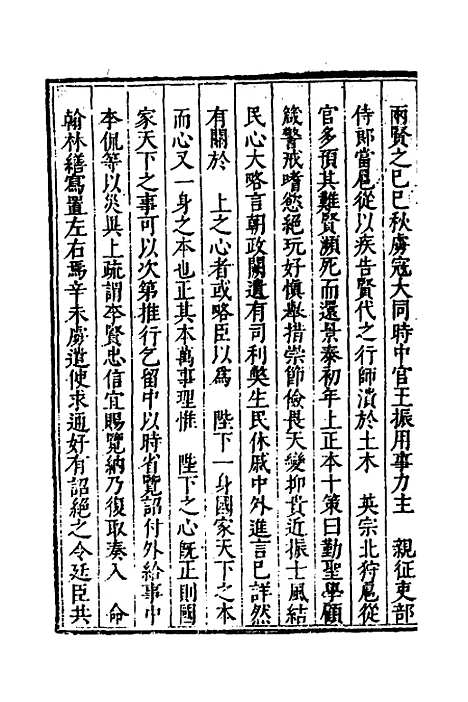 兩賢之己巳秋虜寇大同時中官王振用事力主　親征吏部
侍郎當扈從以疾告賢代之行師潰於土木　英宗北狩扈從
官多預其難賢瀕死而還景泰初年上正本十策曰勤聖學顧
箴警戒嗜慾絕玩好慎舉措崇節儉畏天變抑貴近振士風結
民心大略言朝政闕遺有司利獘生民休戚中外進言已詳然
有關於　上之心者或略臣以爲　陛下一身國家天下之本
而心又一身之本也正其本萬事理惟　陛下之心旣正則國
家天下之事可以次第推行乞留中以時省覽詔付外給事中
李侃等以災異上疏謂李賢忠信宜賜覽納乃復取奏入　命
翰林繕寫置左右焉辛未虜遣使求通好有詔絕之令廷臣共